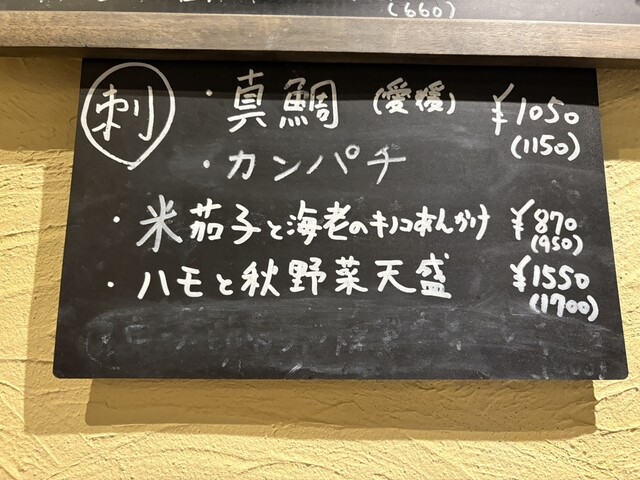 (660)
刺 ・真鯛 (愛媛) ¥1050
(1150)
・カンパチ
・米茄子と海老のキノコあんかけ ¥870
(950)
・ハモと秋野菜天盛 ¥1550
(1700)